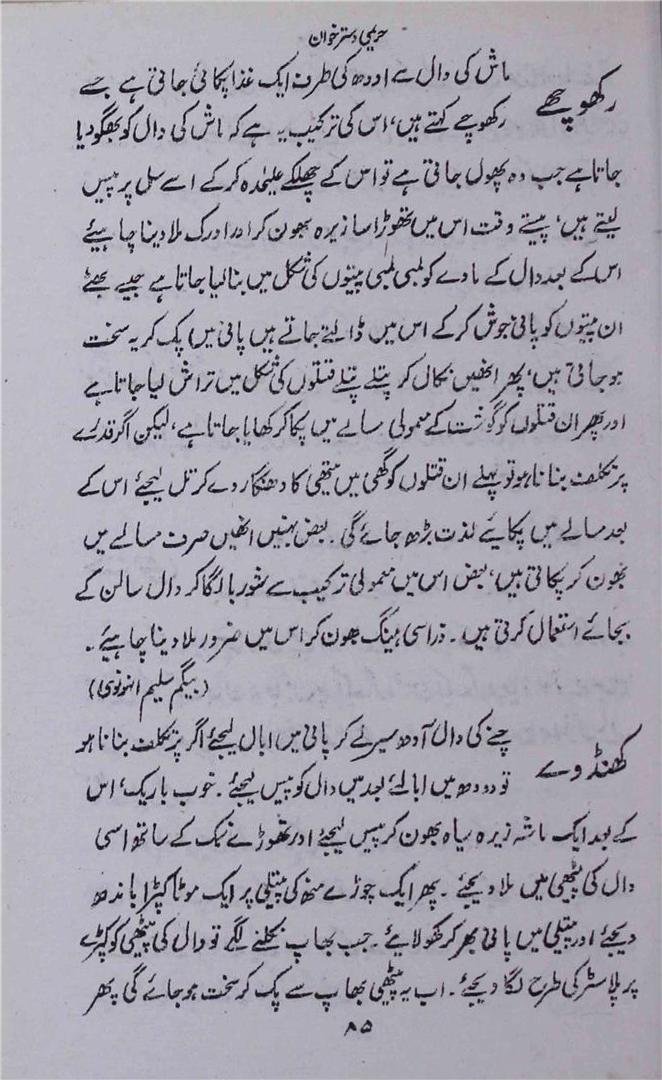 حریمی دسترخوان
رکھوچھے
ماش کی دال سے اودھ کی طرف ایک غذا پکائی جاتی ہے جسے
رکھوچھے کہتے ہیں، اس کی ترکیب یہ ہے کہ ماش کی دال کو بھگو دیا
جاتا ہے جب وہ پھول جاتی ہے تو اس کے چھلکے علیٰحدہ کر کے اسے سل پر پیس
لیتے ہیں، پیستے وقت اس میں تھوڑا سا زیرہ بھون کر اور ادرک ملا دینا چاہیئے
اس کے بعد دال کے مادے کو لمبی لمبی پیتوں کی شکل میں بنا لیا جاتا ہے جیسے بھٹے
ان پیتوں کو پانی جوش کر کے اس میں ڈالتے جاتے ہیں پانی میں پک کر یہ سخت
ہو جاتی ہیں، پھر انھیں نکال کر پتلے پتلے قتلوں کی شکل میں تراش لیا جاتا ہے
اور پھر ان قتلوں کو گوشت کے معمولی مسالے میں پکا کر کھایا جاتا ہے، لیکن اگر قدرے
پر تکلف بنانا ہو تو پہلے ان قتلوں کو گھی میں میتھی کا دھنگار دے کر تل لیجئے اس کے
بعد مسالے میں پکایئے لذت بڑھ جائے گی۔ بعض بہنیں انھیں صرف مسالے میں
بھون کر پکاتی ہیں، بعض اس میں معمولی ترکیب سے شوربا لگا کر دال سالن کے
بجائے استعمال کرتی ہیں۔ ذرا سی ہینگ بھون کر اس میں ضرور ملا دینا چاہیئے۔
(بیگم سلیم انہونوی)
کھنڈوے
چنے کی دال آدھ سیر لے کر پانی میں ابال لیجئے اگر پر تکلف بنانا ہو
تو دودھ میں ابالئے بعد میں دال کو پیس لیجئے۔ خوب باریک، اس
کے بعد ایک ماشہ زیرہ سیاہ بھون کر پیس لیجئے اور تھوڑے نمک کے ساتھ اسی
دال کی پٹھی میں ملا دیجئے۔ پھر ایک چوڑے منھ کی پتیلی پر ایک موٹا کپڑا باندھ
دیجئے اور پتیلی میں پانی بھر کر کھولایئے۔ جب بھاپ نکلنے لگے تو دال کی پٹھی کو کپڑے
پر پلاسٹر کی طرح لگا دیجئے۔ اب یہ پٹھی بھاپ سے پک کر سخت ہو جائے گی پھر
۸۵